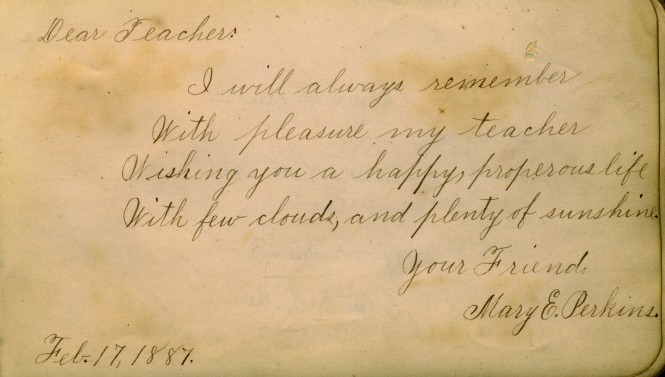 Dear Teacher:
I will always remember
With pleasure my teacher
Wishing you a happy, properous life
With few clouds, and plenty of sunshine.
Your Friend.
Mary E. Perkins.
Feb. 17, 1887.